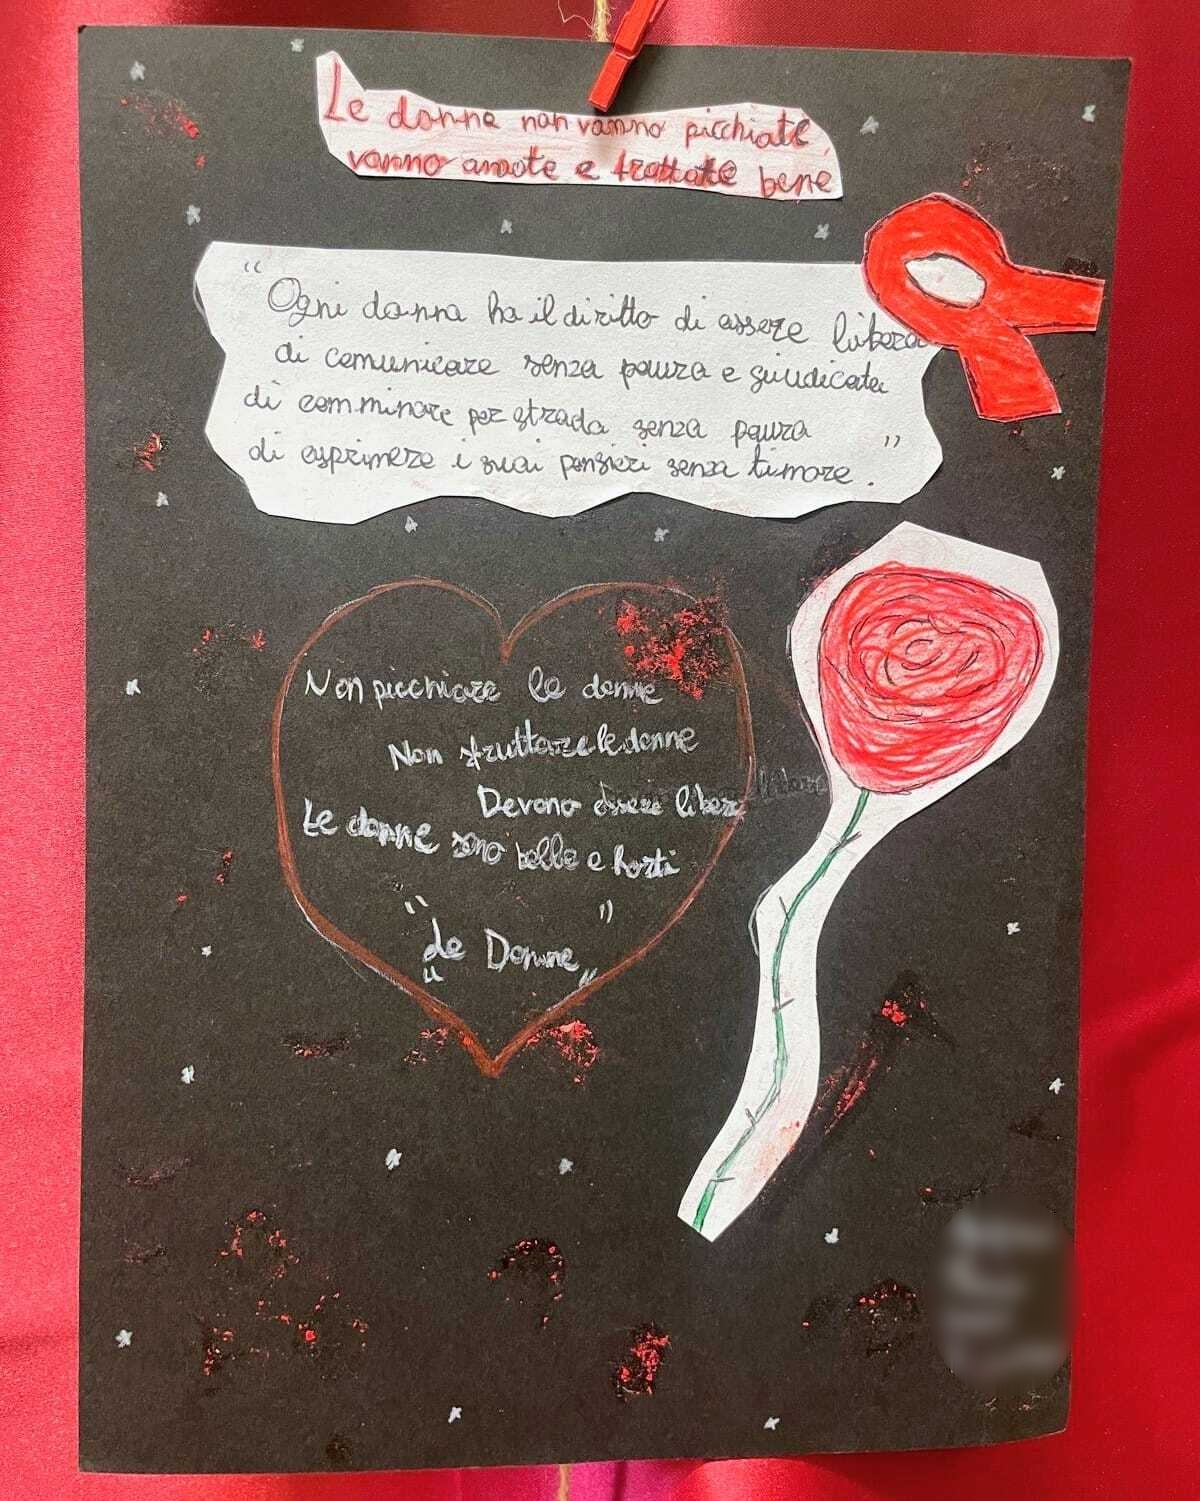 Le donne non vanno picchiate,
vanno amate e trattate bene
"Ogni donna ha il diritto di essere libera
di comunicare senza paura e giudicata
di camminare per strada senza paura
di esprimere i suoi pensieri senza timore."
Non picchiare le donne
Non sfruttare le donne
Devono essere libere
Le donne sono belle e forti
"Le Donne"